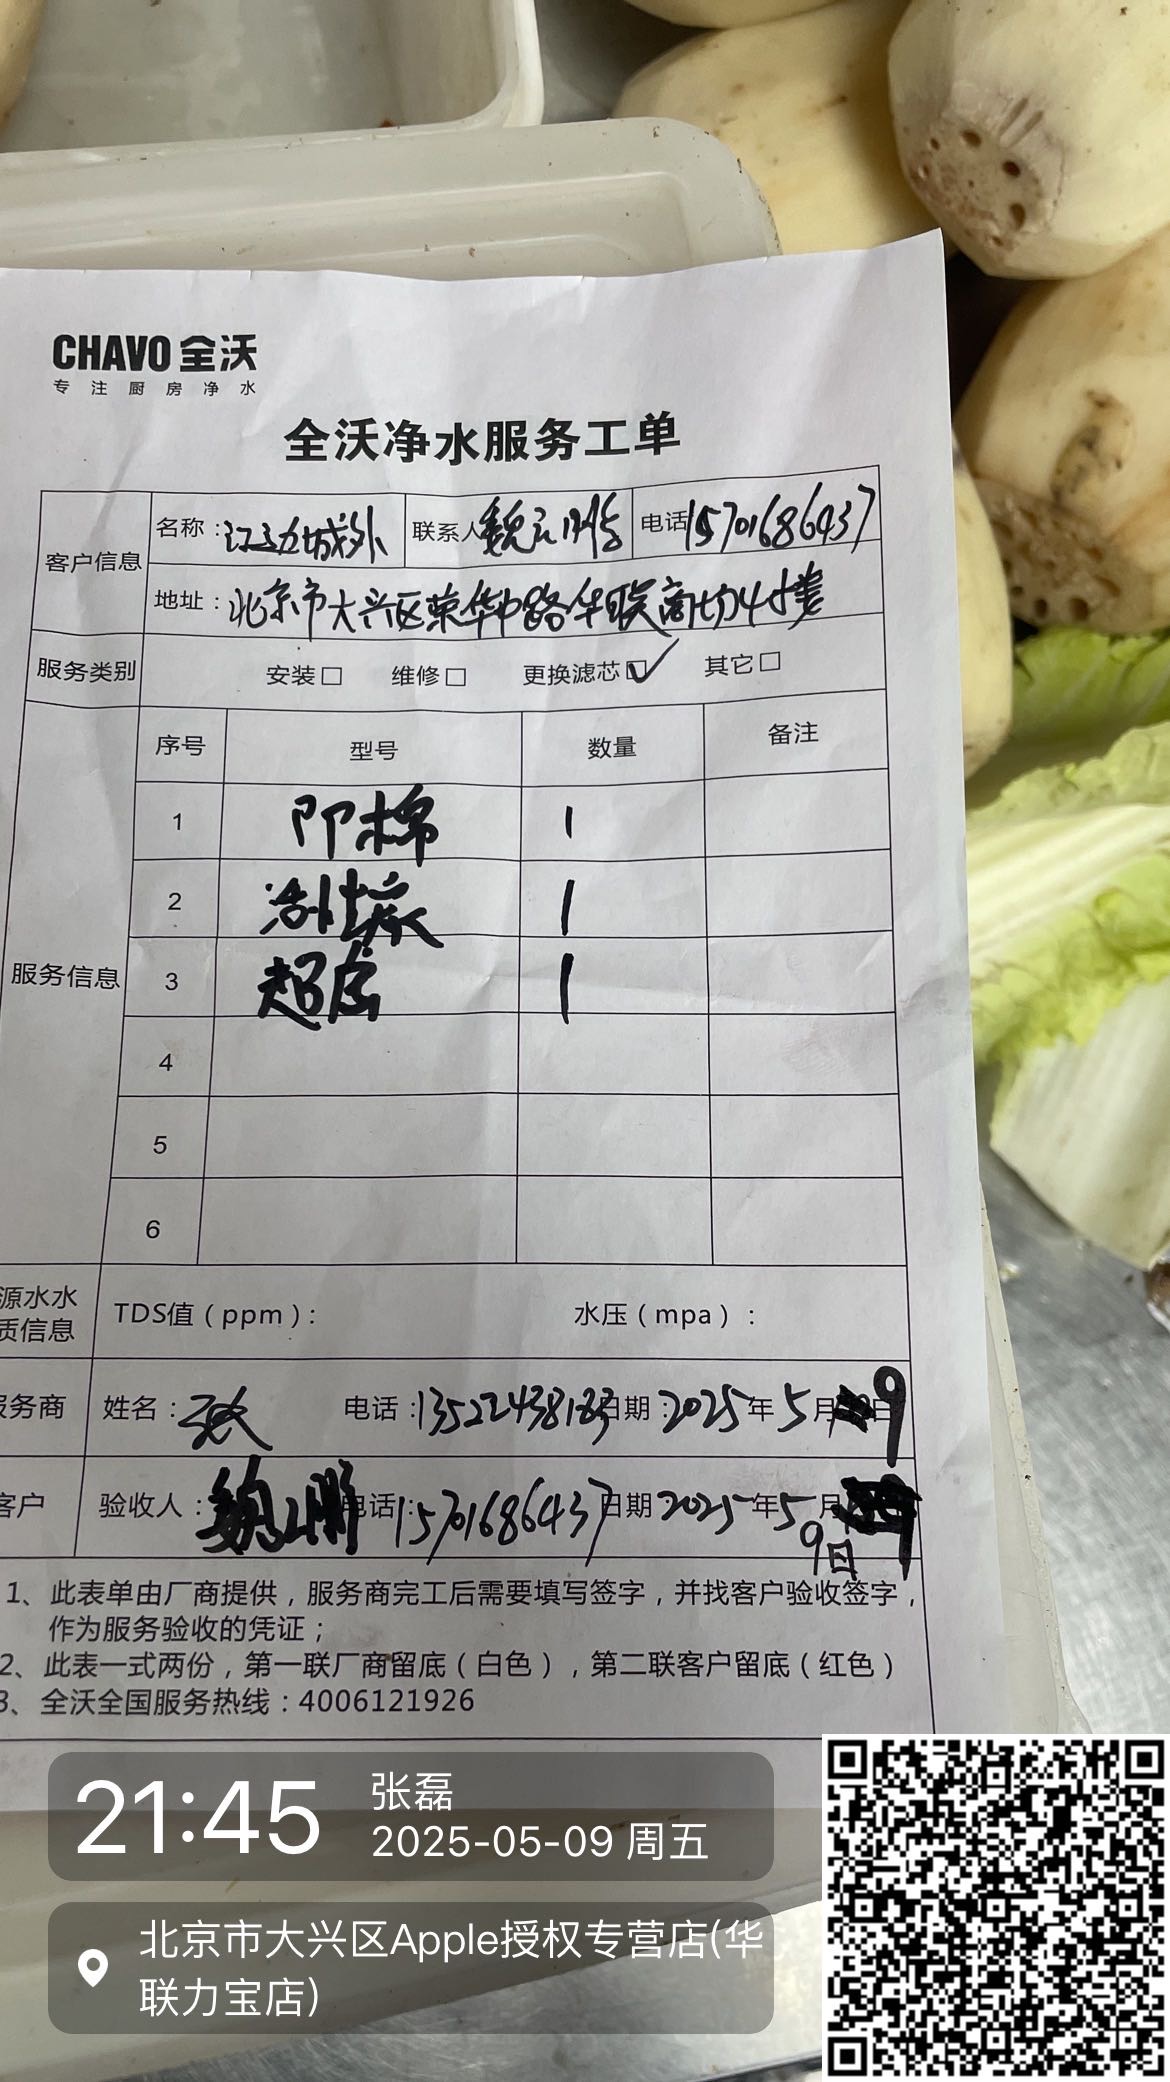 CHAVO 全沃
专注厨房净水
全沃净水服务工单
客户信息 名称：江边城外 联系人 电话 15701686437
地址：北京市大兴区荣华中路华联商场4楼
服务类别 安装□ 维修□ 更换滤芯☑ 其它□
服务信息 序号 型号 数量 备注
1 PP棉 1
2 1
3 1
4
5
6
源水水质信息 TDS值（ppm）： 水压（mpa）：
服务商 姓名：张 电话：13522438183 日期：2025年5月9日
客户 验收人：魏 电话：15701686437 日期 2025年5月
9日
1、此表单由厂商提供，服务商完工后需要填写签字，并找客户验收签字，
作为服务验收的凭证；
2、此表一式两份，第一联厂商留底（白色），第二联客户留底（红色）
3、全沃全国服务热线：4006121926
21:45 张磊
2025-05-09 周五
北京市大兴区Apple授权专营店(华
联力宝店)